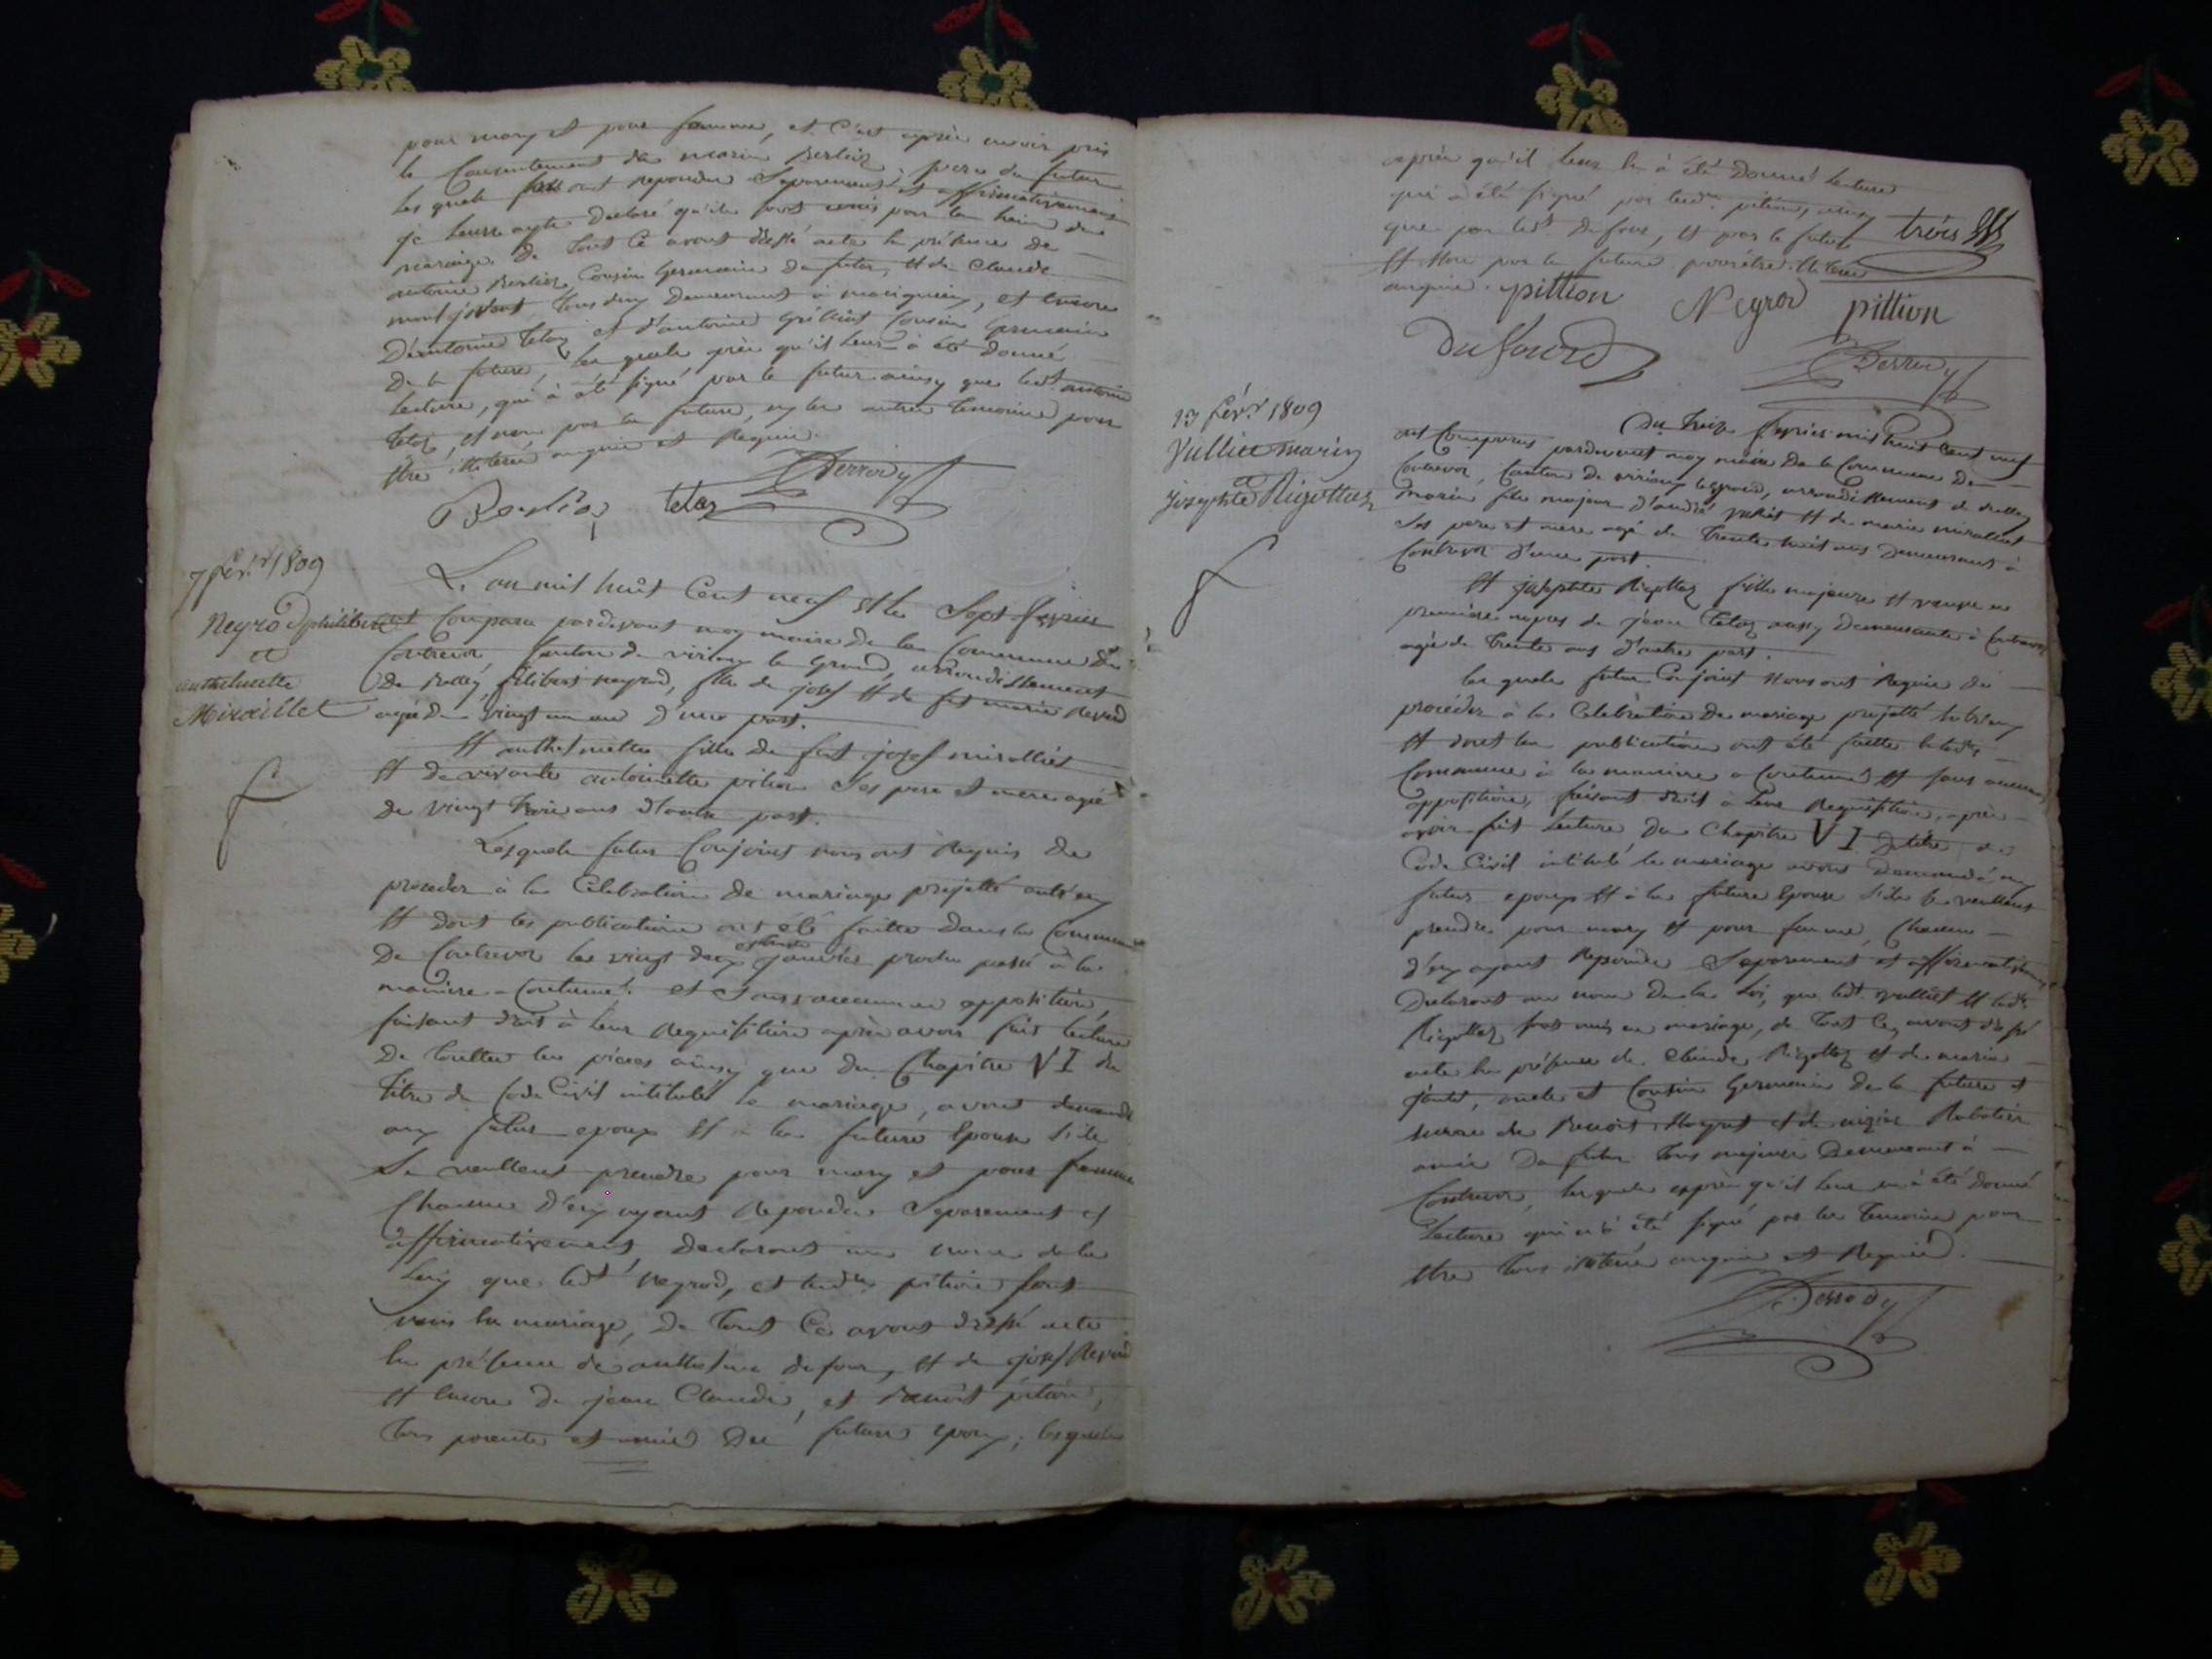 pour mary et pour femme, et c'est après avoir pris
le Consentement de marin Berlioz, pere du futur
les quels ont repondu Separement et affirmativement
je leurs ayte declaré qu'ils sont unis par le lien du
mariage de tout ce avons dressé acte en présence de
antoine Berlioz, Cousin Germain du futur, et de Claude
montjovent, tous deux demeurant à massignieu, et encore
D'antoine teloz et d'antoine Cousin Germain
de la future, les quels après qu'il leurs à été donné
lecture, qui à été signé par le futur ainsy que ledt antoine
teloz, et non par la future, ny les autres temoins pour
être illiteré enquis et Requis.
Berlioz teloz Derrody
7 févr 1809
Negrod philibert
et
anthelmette
Miraillet
L'an mil huit Cent neuf et le Sept fevrier
est Comparu pardevant moy maire de la Commune de
Contrevoz Canton de virieux le Grand, arrondissement
De Belley, filibert negrod, fils de josef et de fut marie Revend
agé de vingt un an d'une part.
et anthelmette fille de fut josef miralliet
et de vivante antoinette pition Ses pere et mere agé
de vingt trois ans d'autre part.
Lesquels futur Conjoint nous ont Requis de
proceder à la Celebration de mariage projetté entr'eux
et dont les publications ont été faitte dans la Commune
De Contrevoz les vingt deux janvier proche passé à la
maniere accoutumé et Sans aucune opposition,
faisant droit à leur Requisition après avoir fait lecture
De touttes les pieces ainsy que du Chapitre VI du
titre du Code Civil intitulé le mariage, avons demandé
aux futur epoux et à la future epouse s'ils
Se veullent prendre pour mary et pour femme
Chacun d'eux ayant Repondu Separement et
affirmativement, declarons au nom de la
Loix que ledt Negrod, et ladte pition sont
unis en mariage, de tout Ce avons dressé acte
en présence de anthelme dufour, et de josef Revend
et encore de jean Claude, et Benoit pition,
tous parents et amis des futurs epoux, lesquels
après qu'il leur en à été Donné lecture
qui à été signé par ledt pition, ainsy
que par ledt Dufour, et par le futur
et non par la future pour être illiteré
enquise. trois
pittion Negrod pittion
Dufour Derrody
13 févr 1809
Vulliet marin
et
josephte Rigottaz
Du treize fevrier mil huit Cent neuf
est Comparus pardevant moy maire De la Commune de
Contrevoz, Canton de virieux le grand, arrondissement de Belley
marin fils majeur d'andré vulliet et de marie miralliet
Ses pere et mere agé de trente huit ans demeurant à
Contrevoz d'une part.
et josephte Rigottaz fille majeure et veuve en
premiere nopces de jean teloz aussy demeurante à Contrevoz
agée de trente ans d'autre part.
les quels futur Conjoint Nous ont Requis de
procéder à la Celebration de mariage projetté entr'eux
et dont les publications ont été faitte en ladte
Commune à la maniere accoutumé et sans aucune
opposition, faisant droit à leur Requisition, après
avoir fait lecture du Chapitre VI du titre du
Code Civil intitulé le mariage avons demandé au
futur epoux et à la future epouse s'ils se veullent
prendre pour mary et pour femme, Chacun
d'eux ayant Repondu Separement et affirmativement
Declarons au nom De la Loi, que ledt vulliet et ladte
Rigottaz sont unis en mariage, de tout Ce avons dressé
acte en présence de Claude Rigottaz et de marin
oncle et Cousin Germain de la future et
encore de Benoit et de
amis du futur tous majeurs demeurant à
Contrevoz, lesquels après qu'il leur en à été donné
Lecture qui n'à été signé par les temoins pour
être tous illiteré enquis et Requis.
Derrody